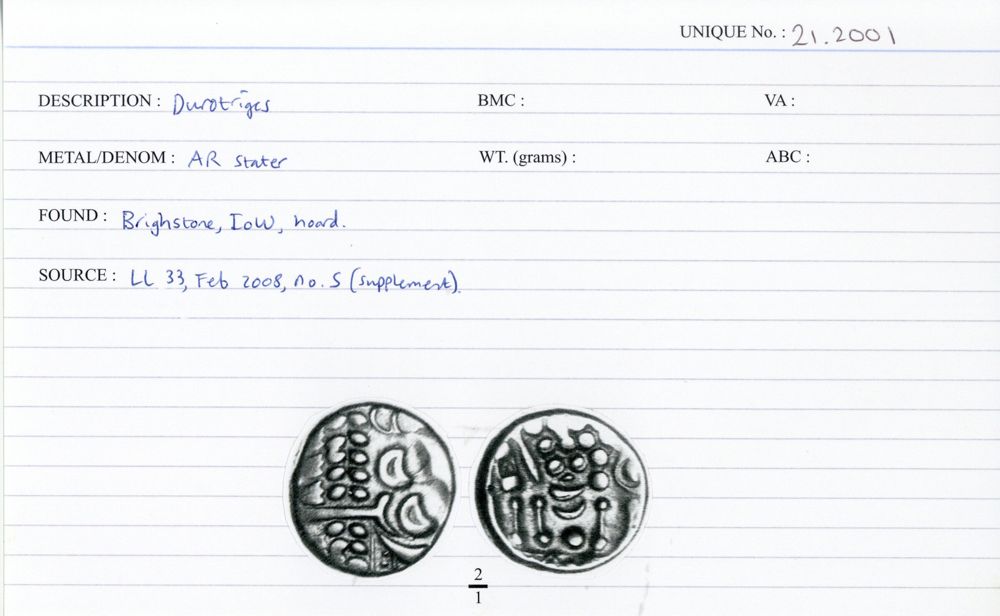 UNIQUE No. : 21.2001
DESCRIPTION : Durotriges BMC : VA :
METAL/DENOM : AR stater WT. (grams) : ABC :
FOUND : Brighstone, IoW, hoard.
SOURCE : LL 33, Feb 2008, no. 5 (supplement).
2
1